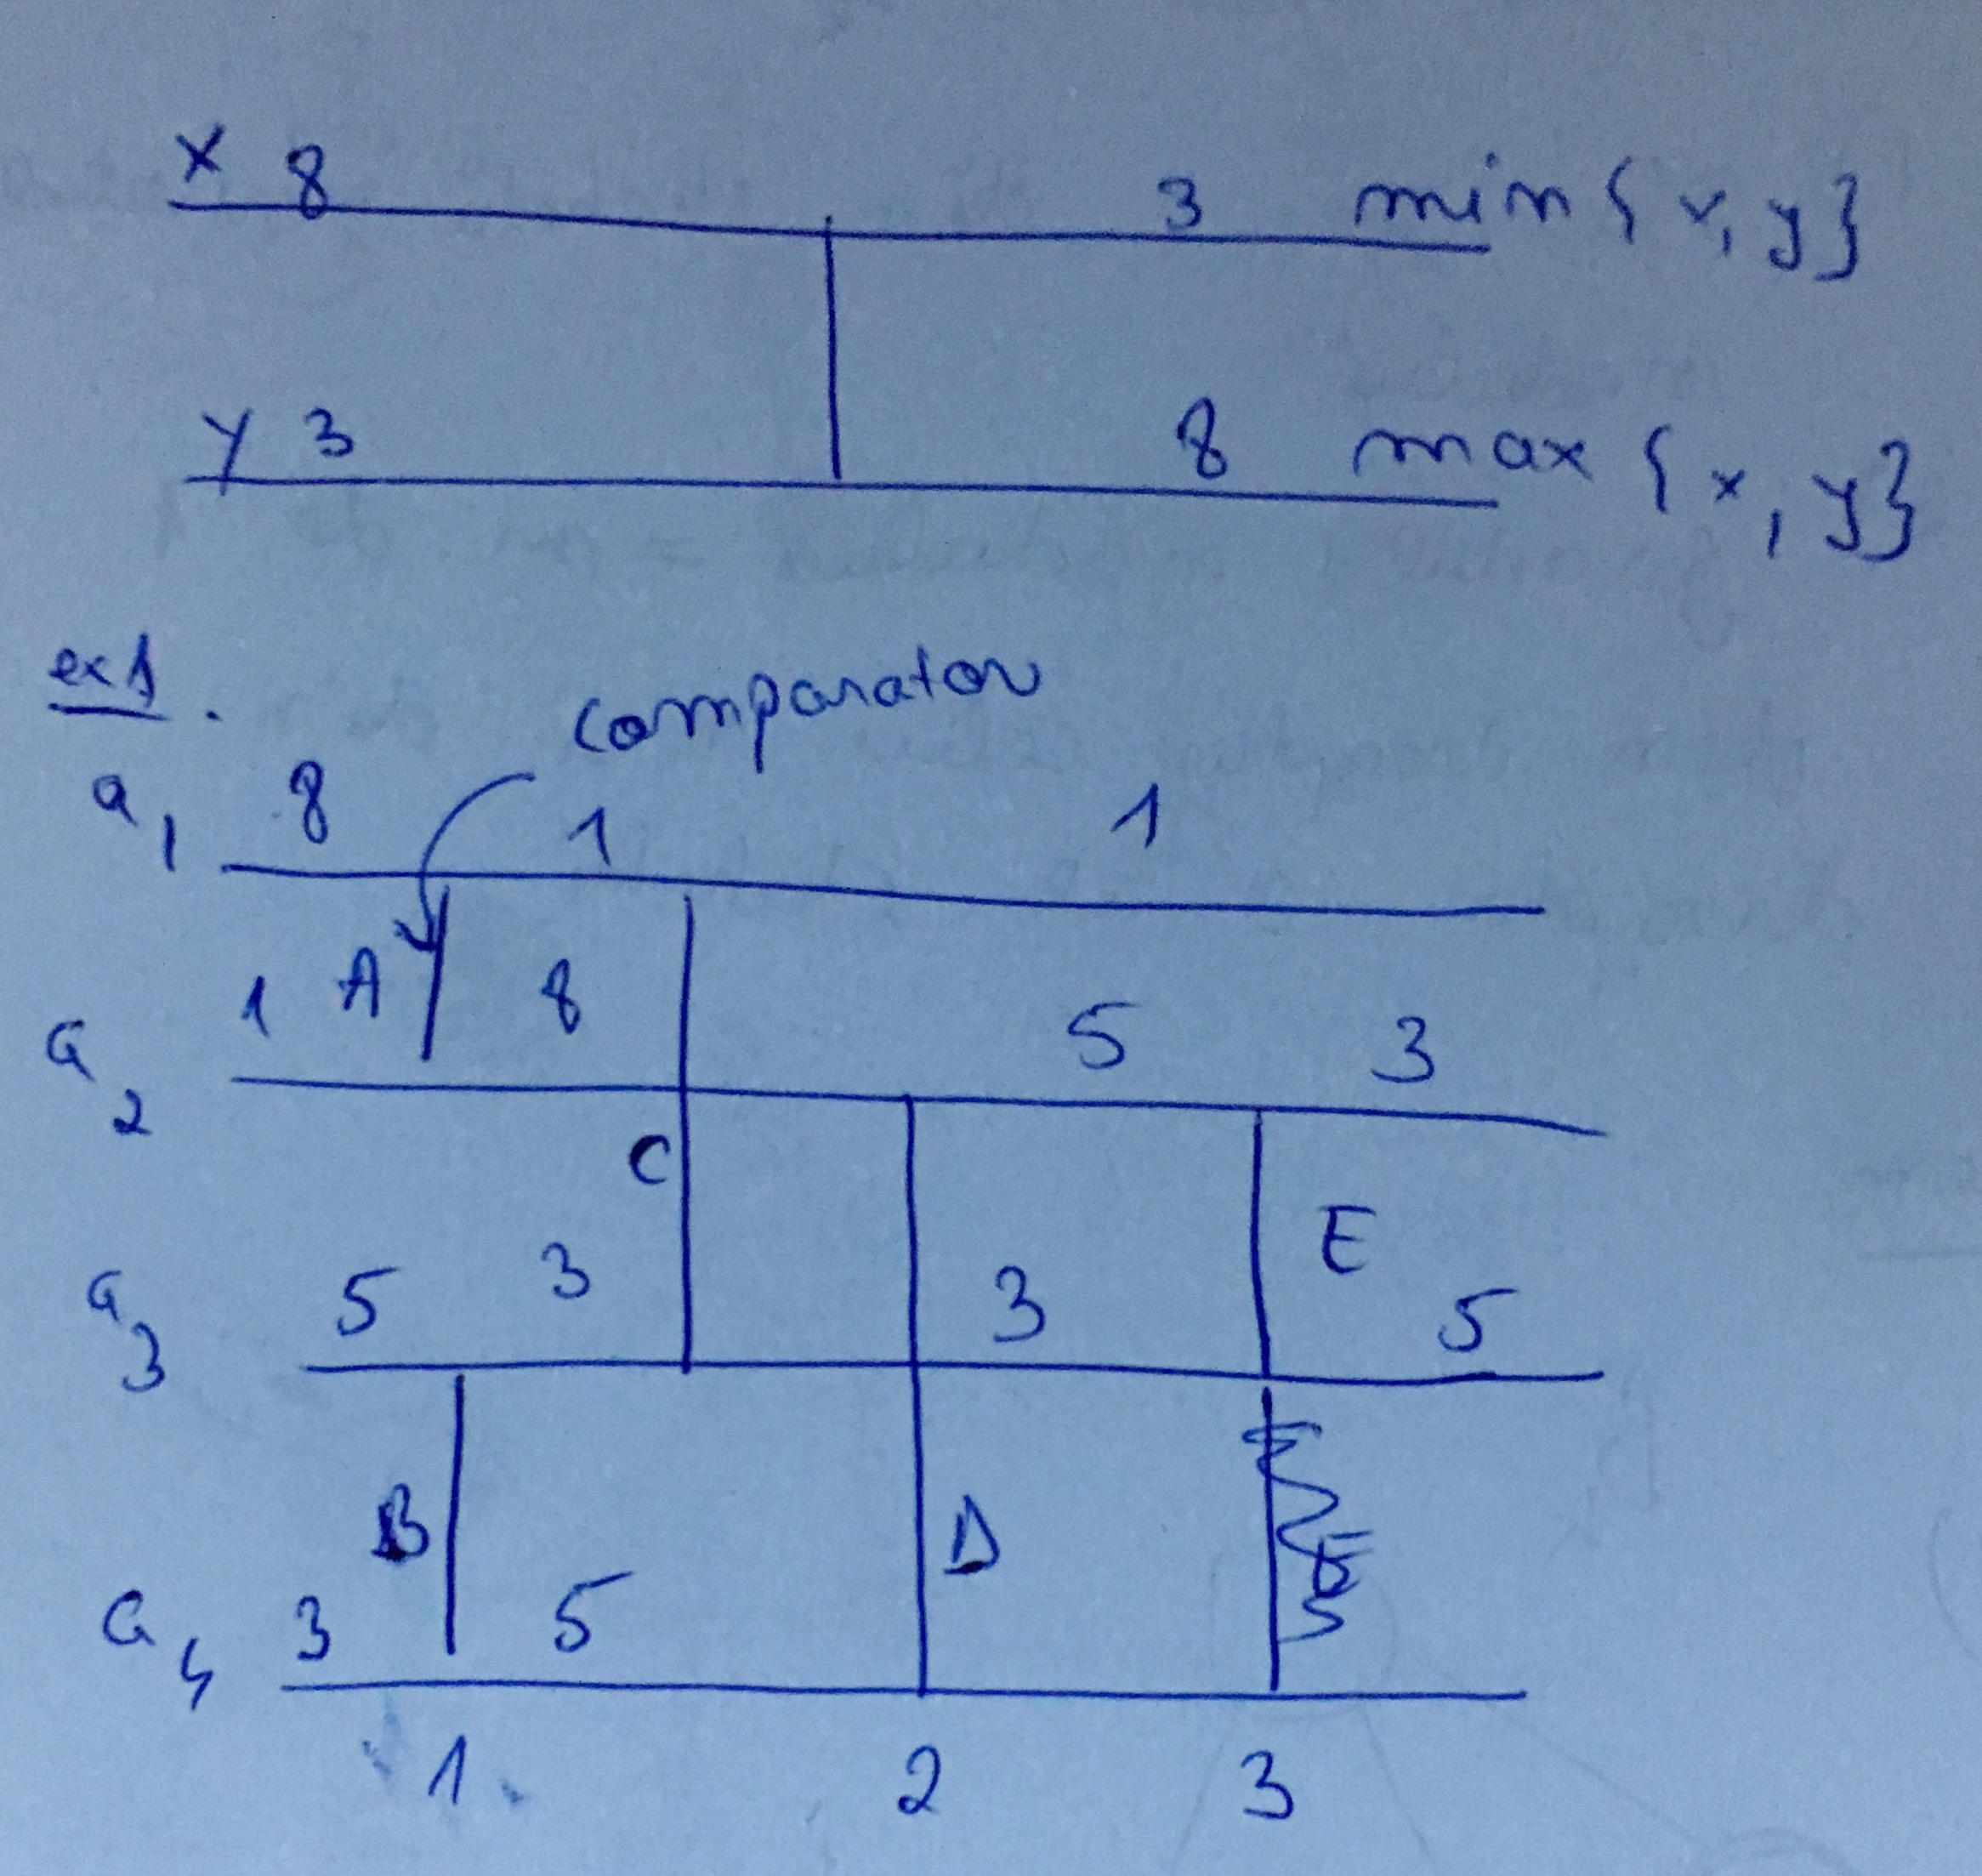 x 8 3 min { x, y }
y 3 8 max { x, y }
ex 1.
comparator
a1 8 1 1
a2 1 A 8 5 3
C
E
a3 5 3 3 5
B D
a4 3 5
1 2 3